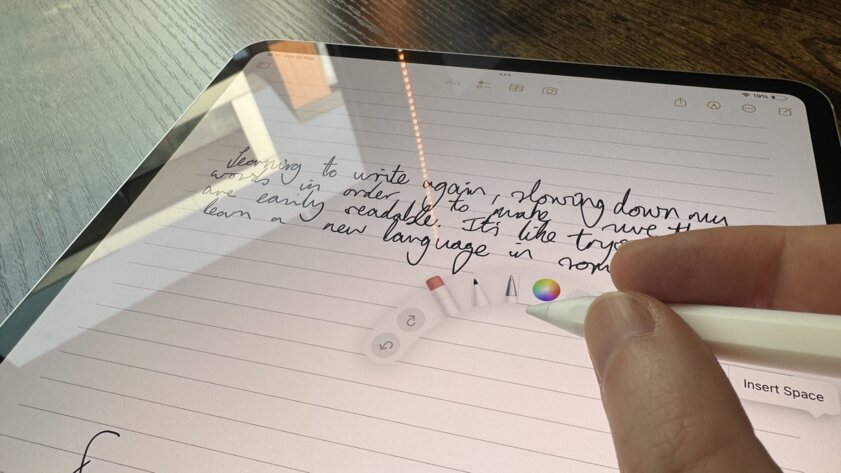 19%
Learning to write again, slowing down my
words in order to make sure
are easily readable. It's like
learn a new language in
Insert Space
f